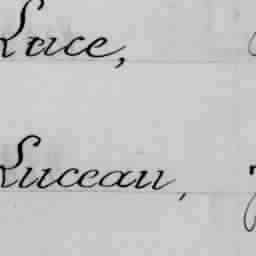 Luce,
Luceau,